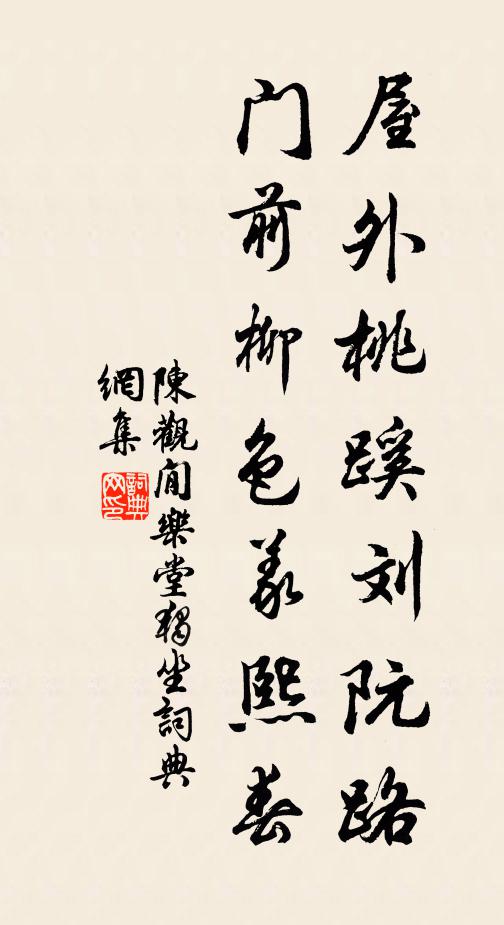 屋外桃蹊刘阮路
门前柳色羲熙春
陳觀閒樂堂獨坐詞典
網集
詞典网印